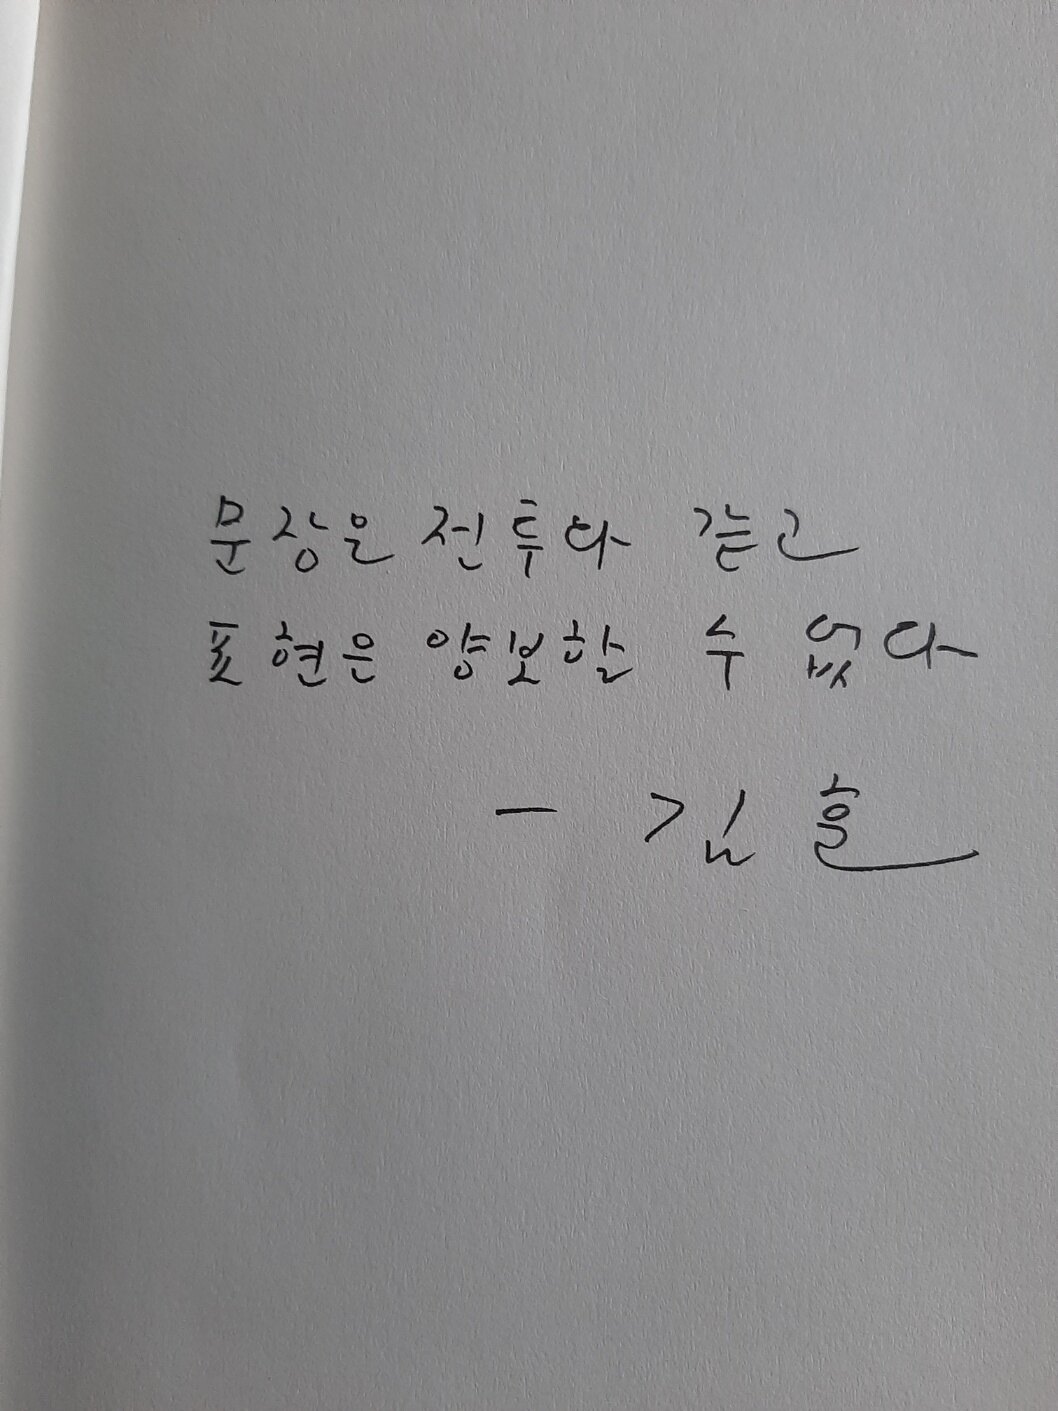 문장은 전투와 같고
표현은 양보할 수 없다
— 김훈